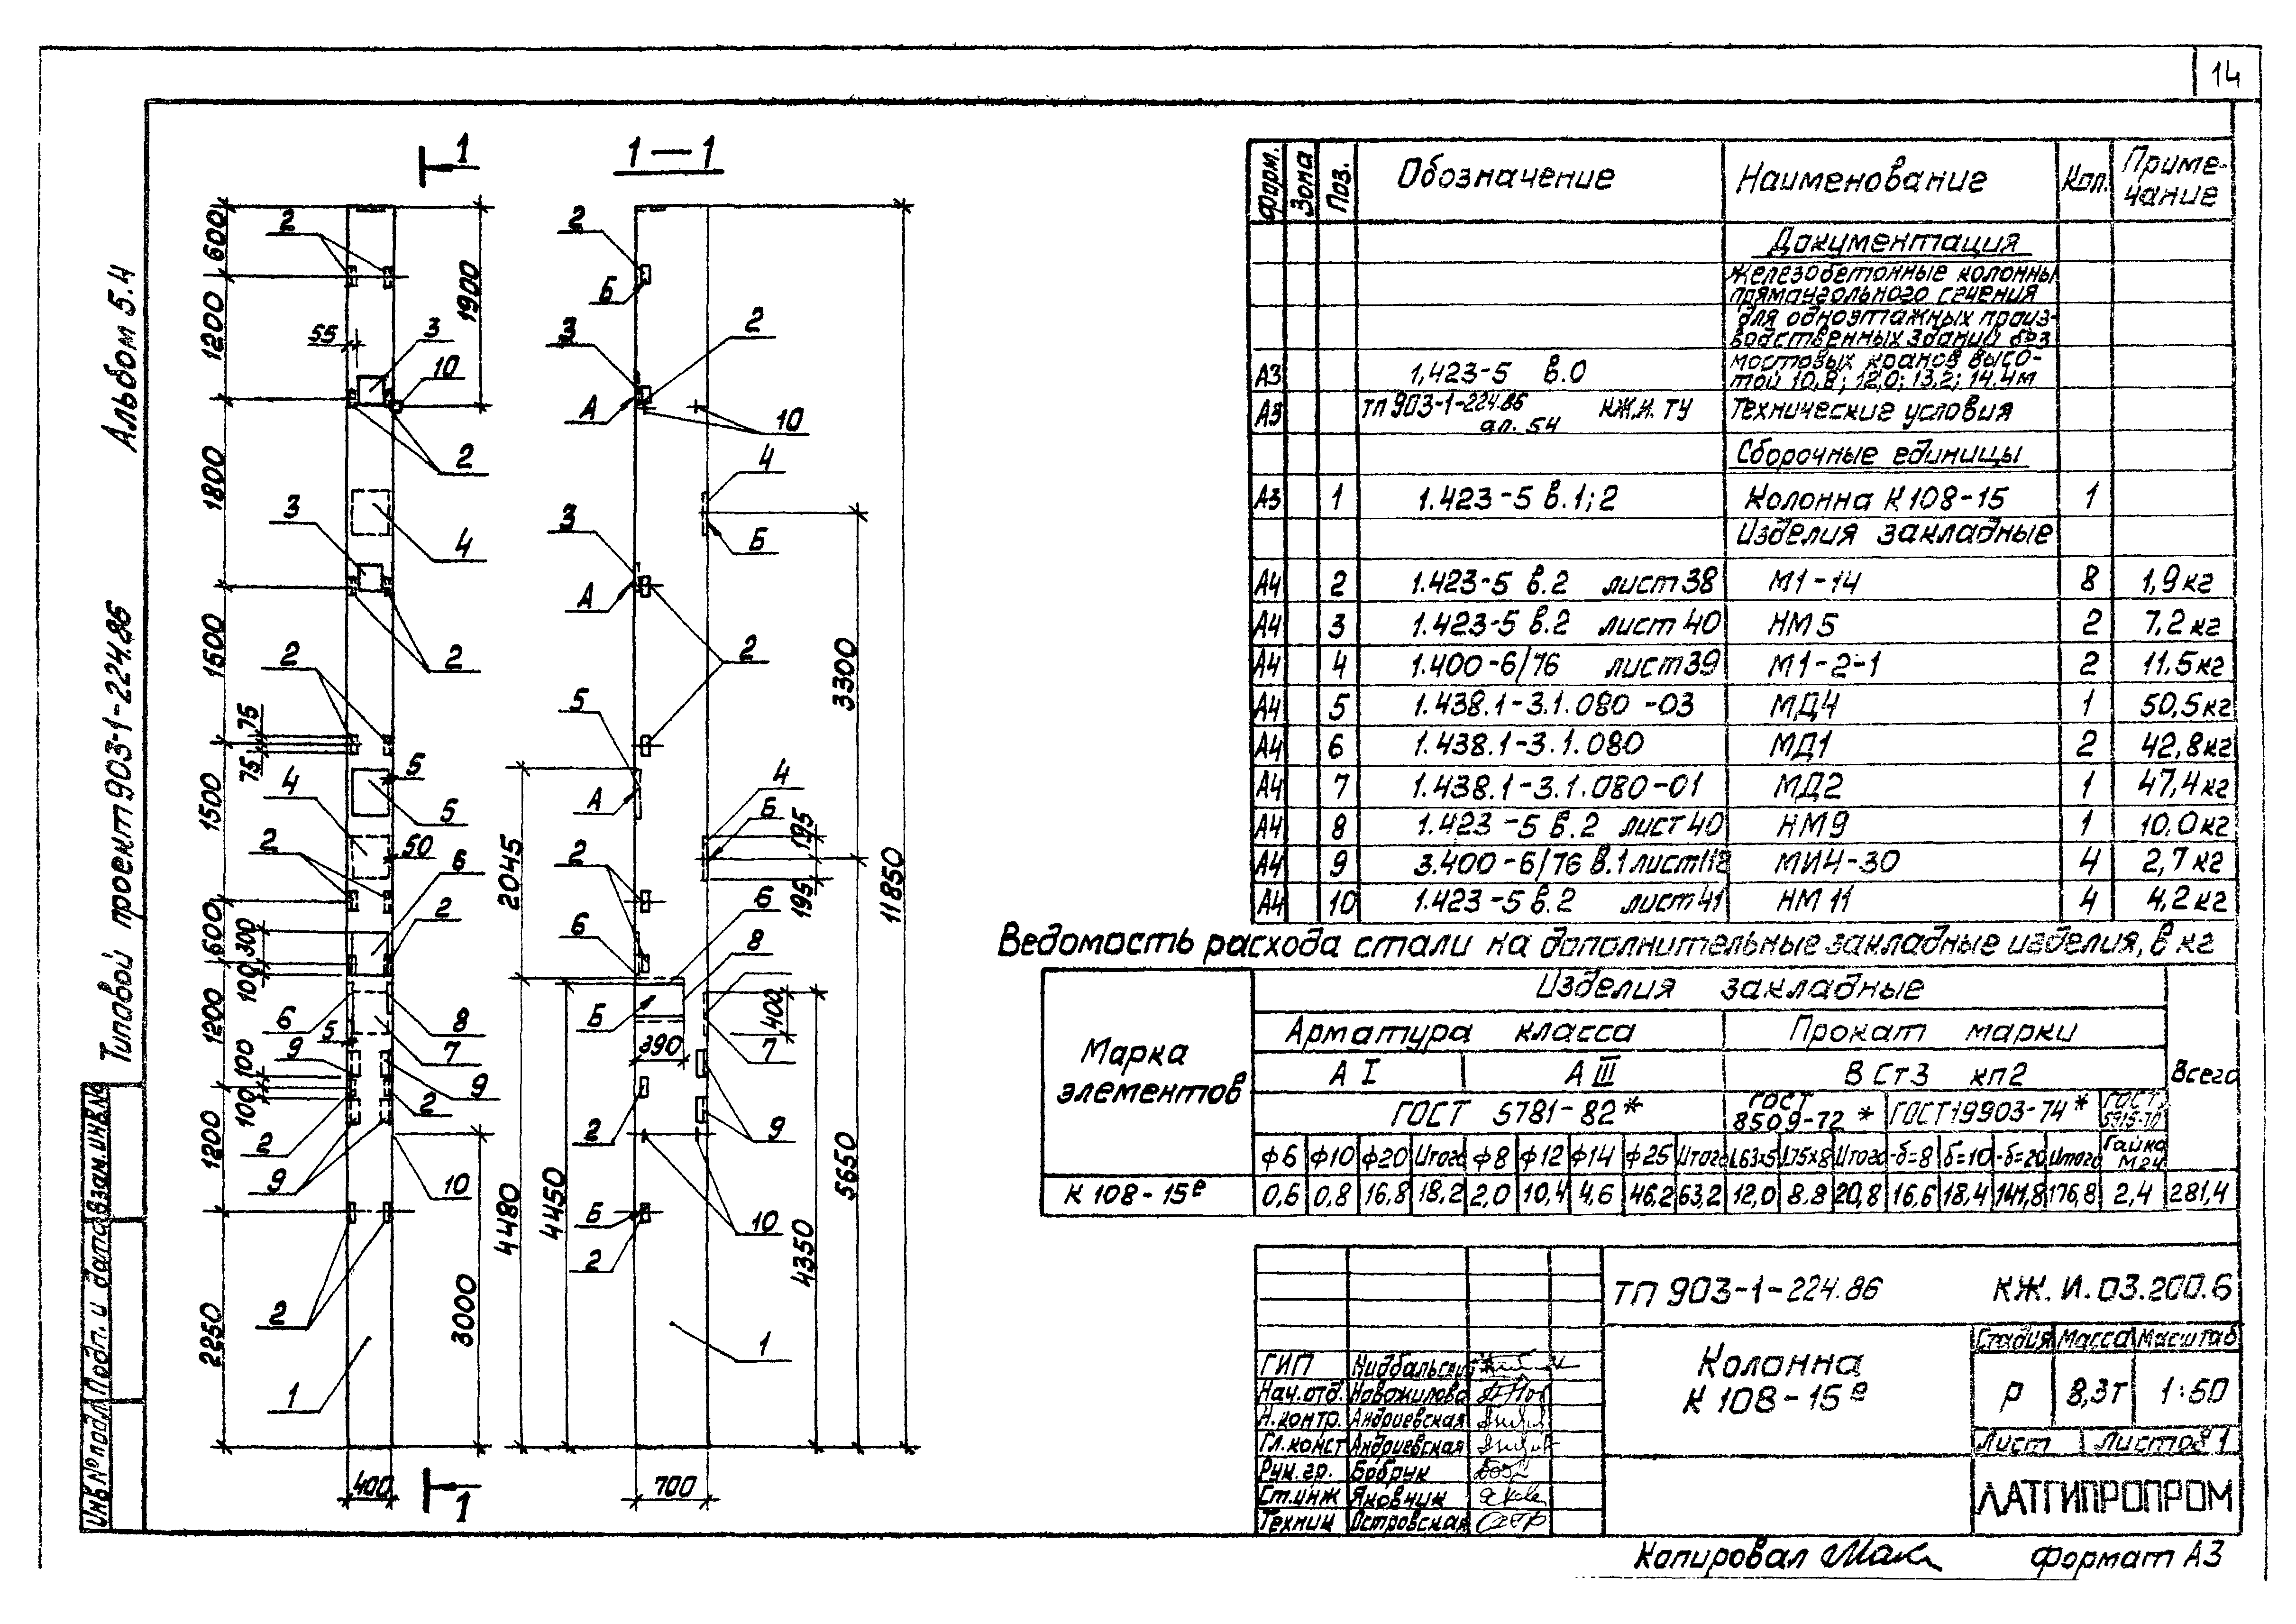 14
Альбом 5.4
Типовой проект 903-1-224.86
Инв.№подл.
Подп. и дата
Взам.инв.№
1
1—1
600
1200
1800
1500
1500
600
1200
1200
2250
1900
55
75
75
300
100
100
100
50
5
5
400
3000
2
3
10
2
3
4
2
2
5
4
5
2
6
2
6
8
9
7
9
2
2
9
10
2
1
1
2
Б
3
2
А
10
4
3
Б
А
2
5
4
А
Б
195
195
2
6
6
8
Б
390
400
7
9
2
2
Б
10
2
1
700
2045
4480
4450
3300
5650
4350
11850
Форм. Зона Поз. Обозначение Наименование Кол. Примечание
Документация
Железобетонные колонны
прямоугольного сечения
для одноэтажных произ-
водственных зданий без
мостовых кранов высо-
А3 1.423-5 в.0 той 10,8; 12,0; 13,2; 14,4м
А3 ТП 903-1-224.86 ал. 54 КЖ.И. ТУ Технические условия
Сборочные единицы
А3 1 1.423-5 в.1;2 Колонна К108-15 1
Изделия закладные
А4 2 1.423-5 в.2 лист 38 М1-14 8 1,9кг
А4 3 1.423-5 в.2 лист 40 НМ5 2 7,2кг
А4 4 1.400-6/76 лист 39 М1-2-1 2 11,5кг
А4 5 1.438.1-3.1.080-03 МД4 1 50,5кг
А4 6 1.438.1-3.1.080 МД1 2 42,8кг
А4 7 1.438.1-3.1.080-01 МД2 1 47,4кг
А4 8 1.423-5 в.2 лист 40 НМ9 1 10,0кг
А4 9 3.400-6/76 в.1 лист МИ4-30 4 2,7кг
А4 10 1.423-5 в.2 лист 41 НМ11 4 4,2кг
Ведомость расхода стали на дополнительные закладные изделия, в кг
Марка элементов
Изделия закладные
Арматура класса Прокат марки
А I А III ВСт3 кп2 Всего
ГОСТ 5781-82* ГОСТ 8509-72* ГОСТ 19903-74* ГОСТ
ф6 ф10 ф20 Итого ф8 ф12 ф14 ф25 Итого L63х5 L75х8 Итого -б=8 б=10 -б=20 Итого Гайка М24
К 108-15е 0,6 0,8 16,8 18,2 2,0 10,4 4,6 46,2 63,2 12,0 8.8 20,8 16,6 18,4 141,8 176,8 2,4 281,4
ТП 903-1-224.86 КЖ.И.03.200.6
Колонна
К 108-15е
Стадия Масса Масштаб
Р 8,3т 1:50
Лист Листов 1
ЛАТГИПРОПРОМ
ГИП
Нач.отд. Новожилова
Н.контр. Андриевская
Гл.конст Андриевская
Рук.гр. Бобрик
Ст.инж Яковчик
Техник Островская
Копировал Формат А3